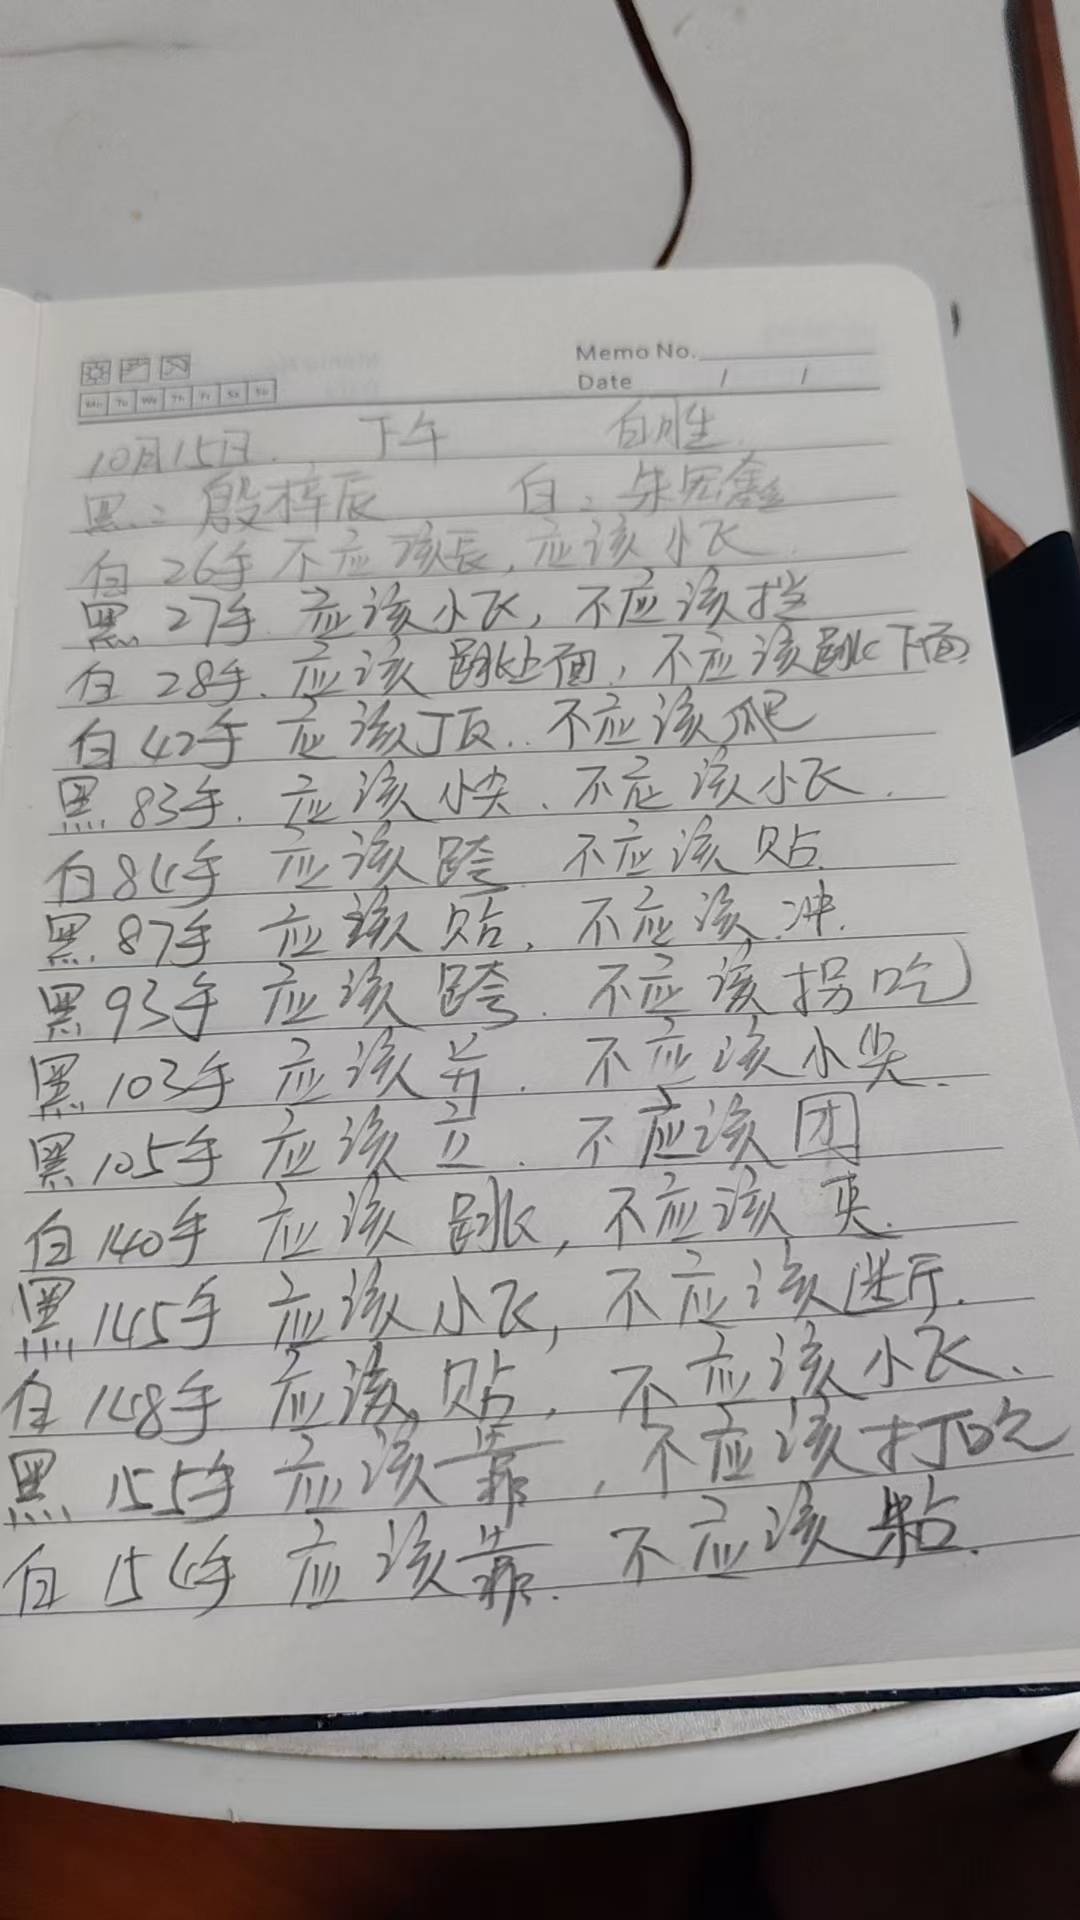 Memo No.
Date / /
Mo Tu We Th Fr Sa Su
10月15日. 下午 白胜.
黑:殷梓辰 白:朱宏鑫
白26手不应该长,应该小飞.
黑27手.应该小飞,不应该挡
白28手.应该跳上面,不应该跳下面
白42手应该顶..不应该爬
黑83手.应该小尖.不应该小飞.
白84手 应该跨 不应该贴.
黑87手 应该贴,不应该冲.
黑93手 应该跨.不应该拐吃
黑103手 应该并.不应该小尖.
黑105手 应该立.不应该团
白140手 应该跳,不应该夹.
黑145手 应该小飞,不应该进行.
白148手 应该贴,不应该小飞.
黑155手 应该靠,不应该打吃
白154手 应该靠.不应该粘.